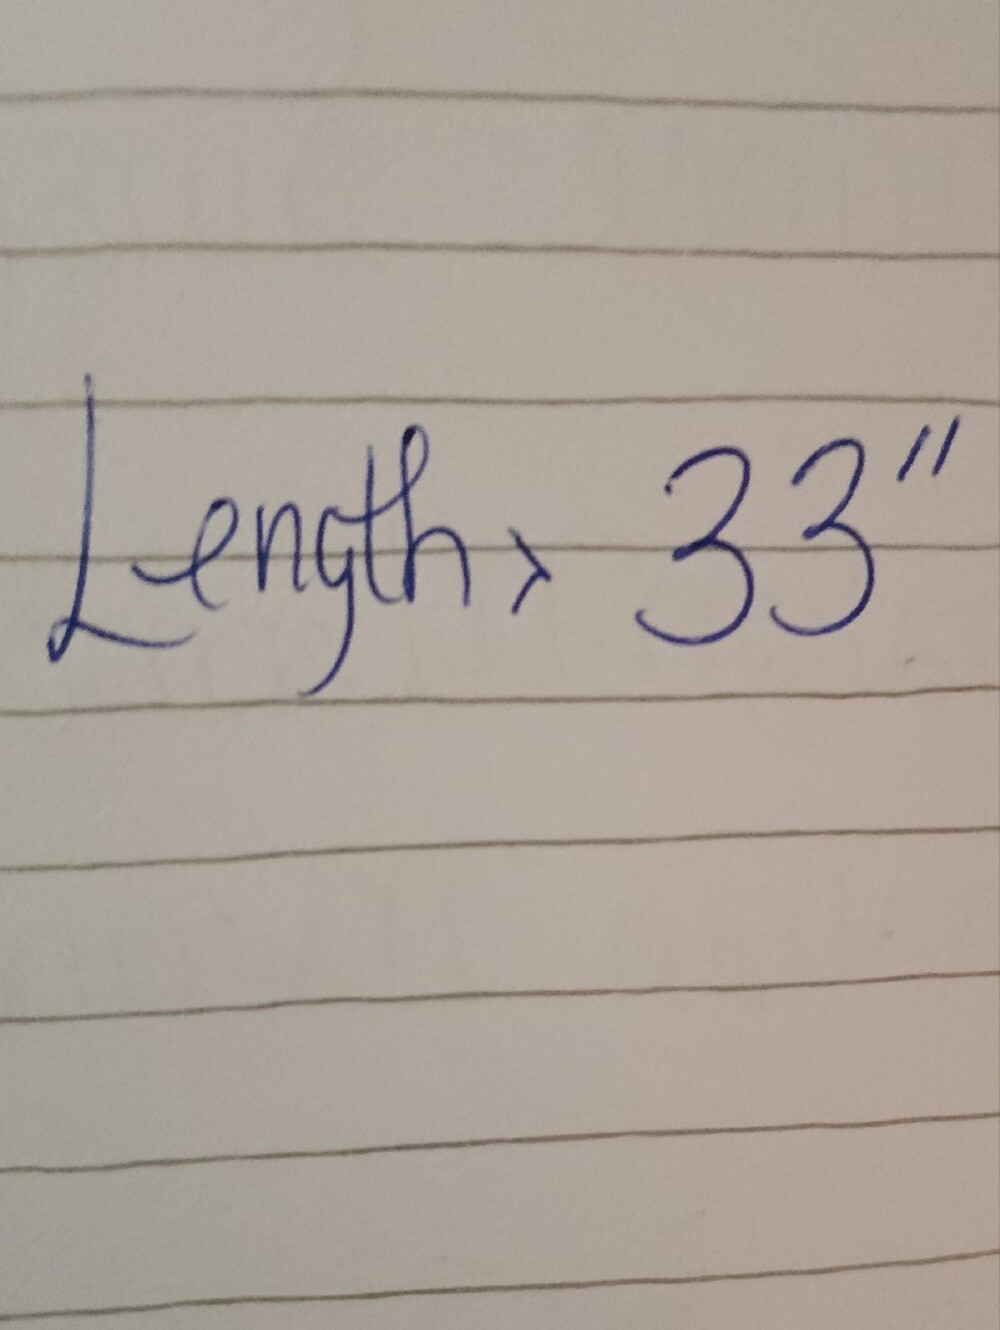 Length > 33"